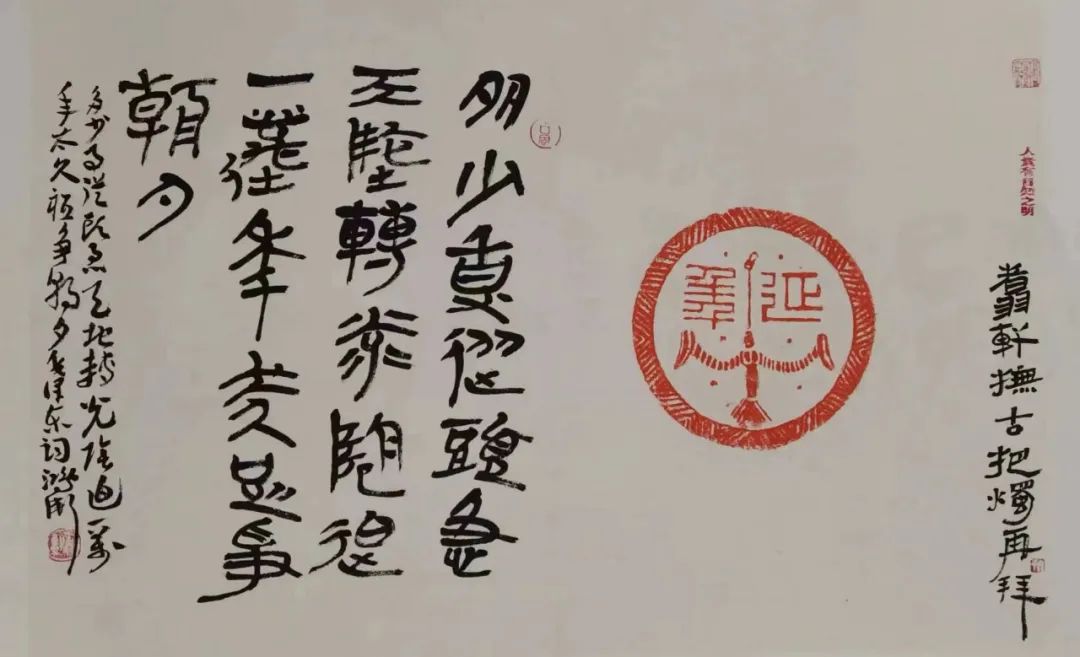 人貴有自知之明
翥軒撫古把燭再拜
延年
多少事從頭急
天地轉光陰迫
一萬年太久只爭
朝夕
多少事從頭急天地轉光陰迫一萬
年太久祗爭朝夕毛澤東詞